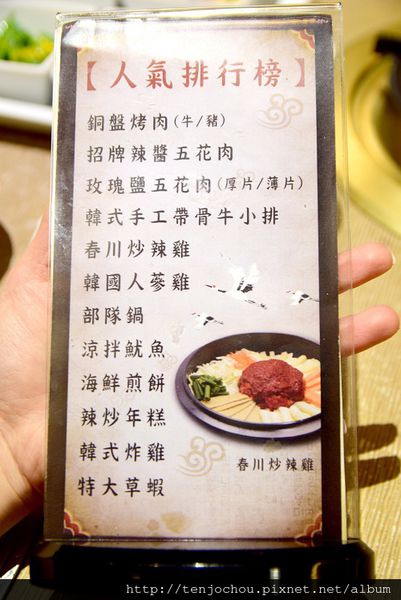 【人氣排行榜】
銅盤烤肉(牛/豬)
招牌辣醬五花肉
玫瑰鹽五花肉(厚片/薄片)
韓式手工帶骨牛小排
春川炒辣雞
韓國人蔘雞
部隊鍋
涼拌魷魚
海鮮煎餅
辣炒年糕
韓式炸雞
特大草蝦
春川炒辣雞
http://tenjochou.pixnet.net/album